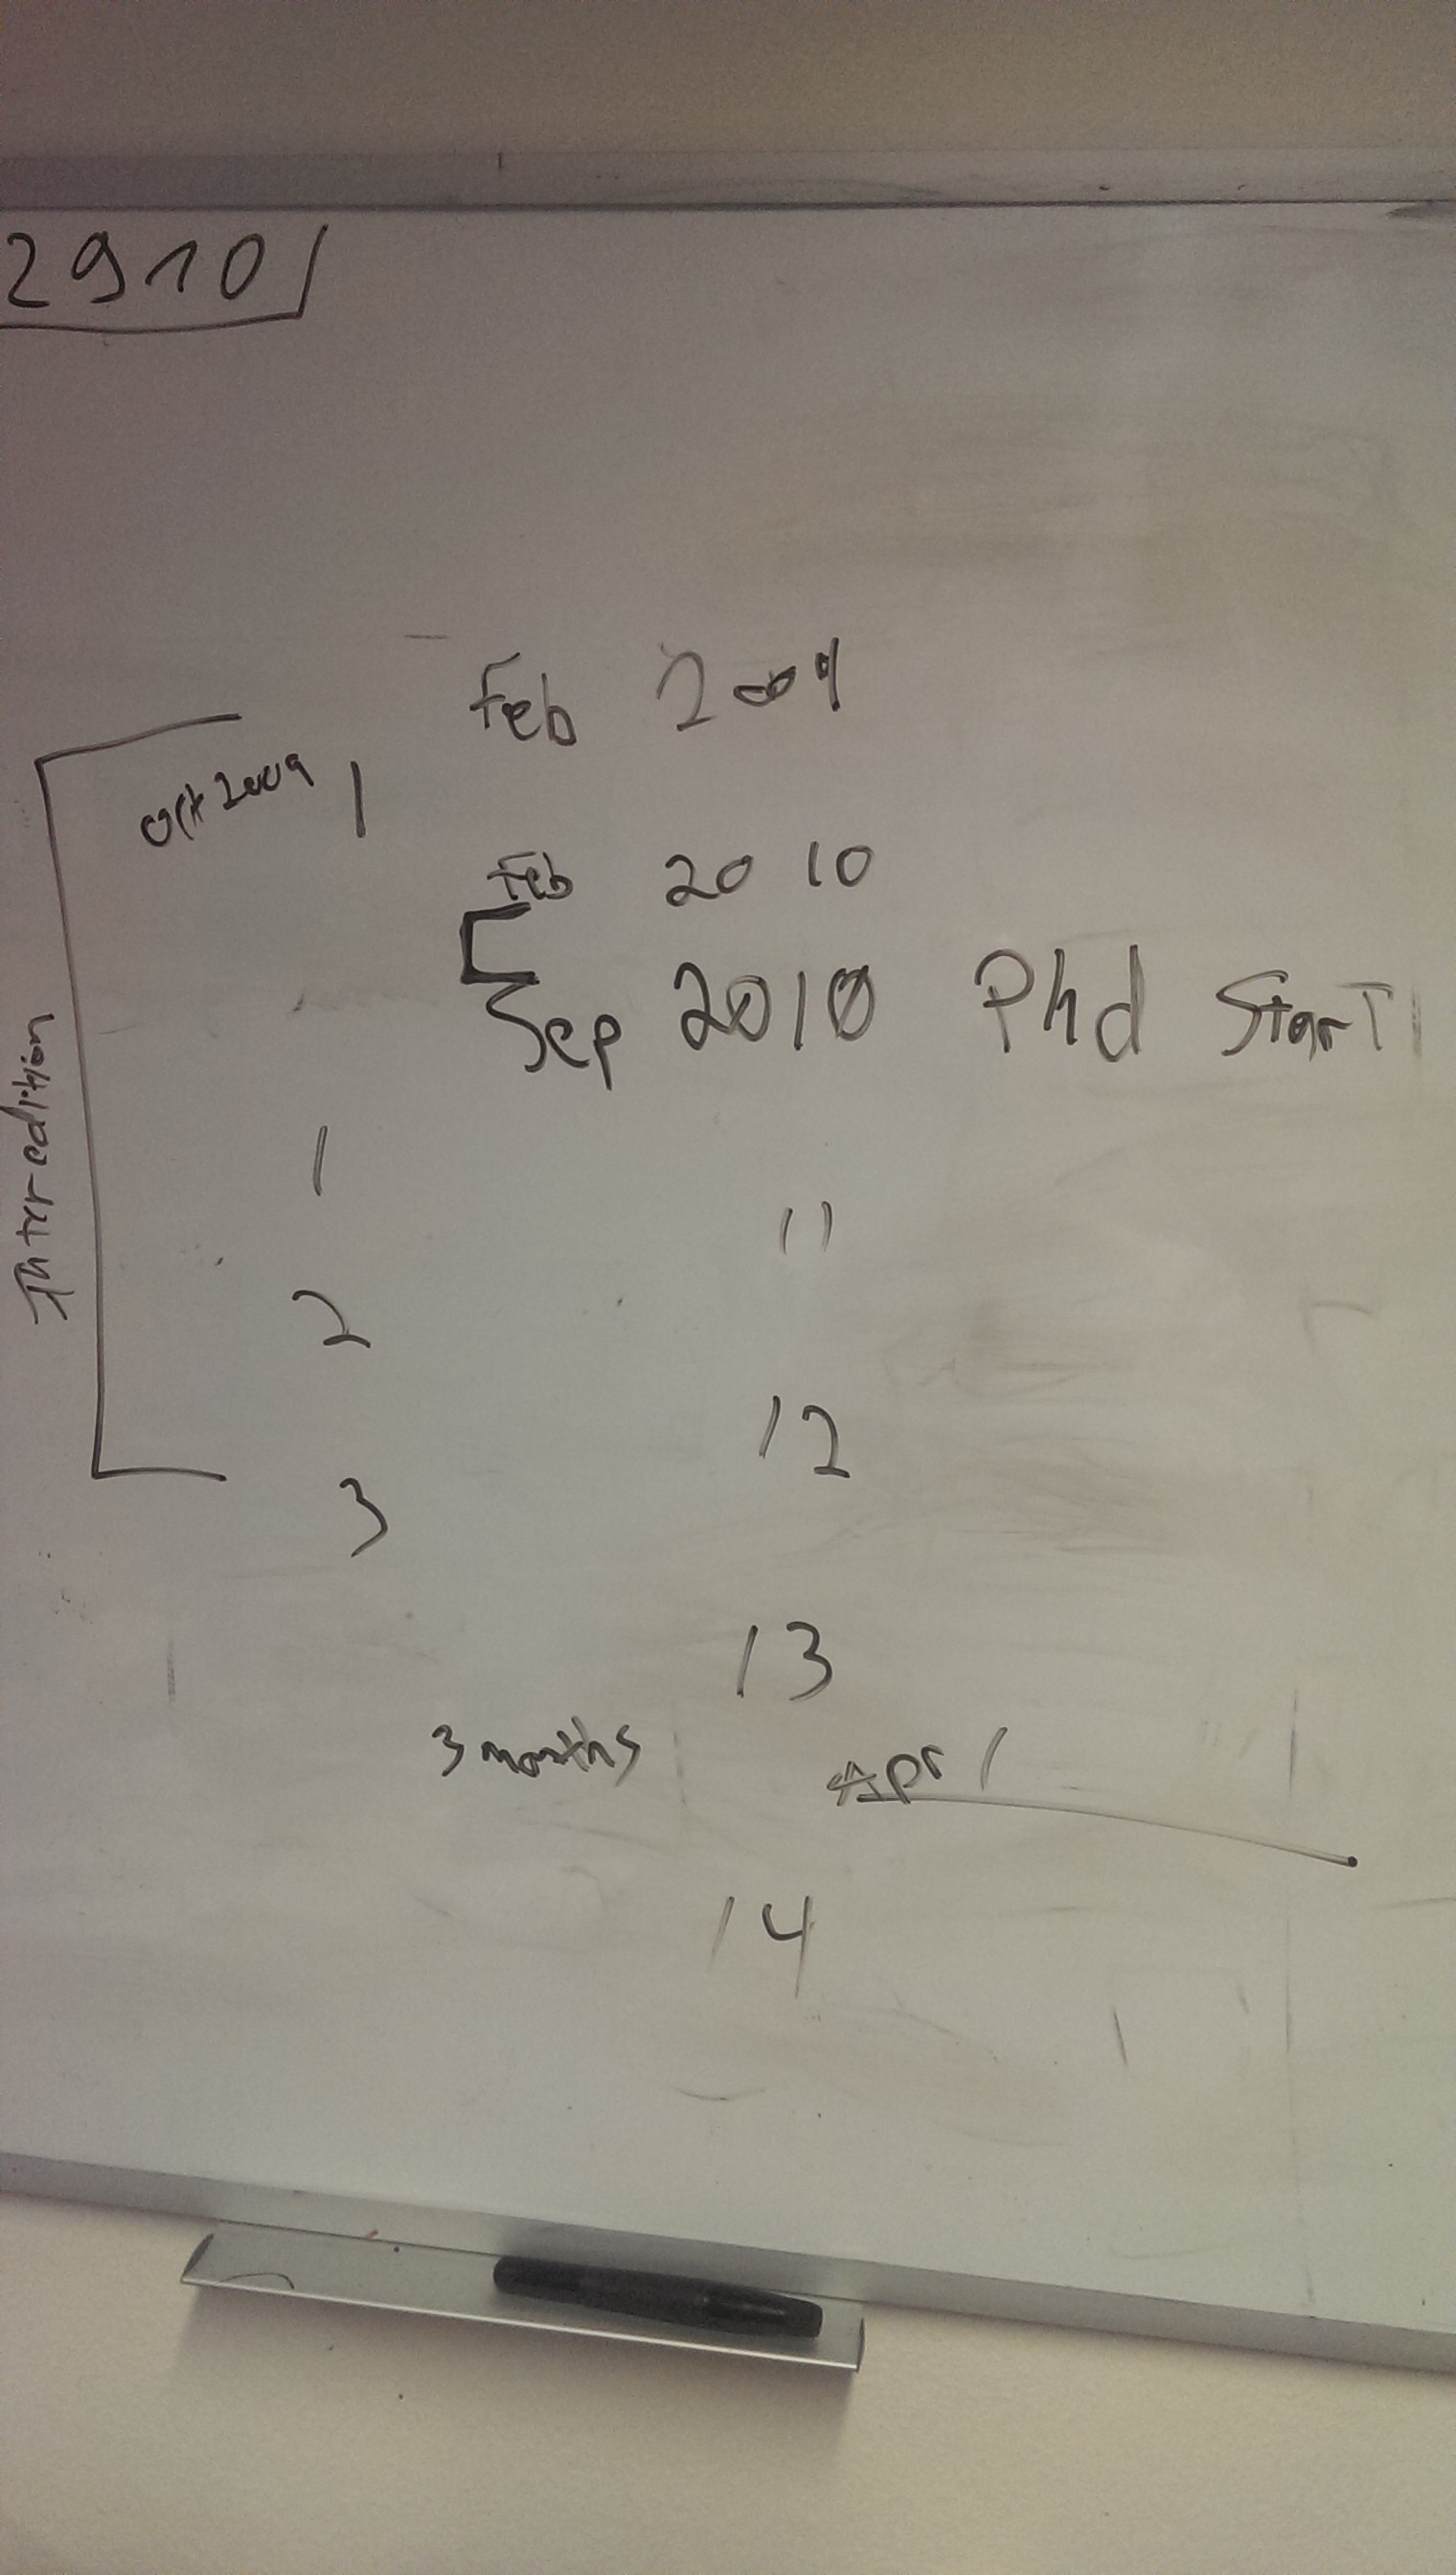 2910
Feb 2009
Oct 2009 1
Feb 2010
Sep 2010 Phd Start
Interedition
1
11
2
12
3
13
3 months Apr 1
14